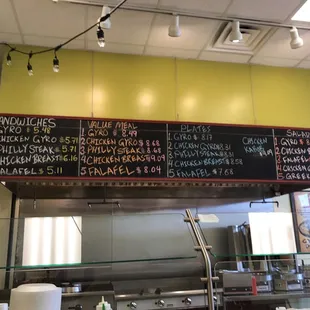 SANDWICHES
GYRO $ 5.48
CHICKEN GYRO $5.71
PHILLY STEAK $5.71
CHICKEN BREAST $6.16
FALAFEL $ 5.11
VALUE MEAL
1. GYRO $ 8.49
2 CHICKEN GYRO $ 8.68
3 PHILLY STEAK $ 8.68
4 CHICKEN BREAST $9.04
5 FALAFEL $ 8.04
PLATES
1 GYRO $
2 CHICKEN GYRO
3 PHILLY STEAK $
4 CHICKEN BREAST $
5 FALAFEL $ 7.68
CHICKEN
KABOB
SALADS
1 GYRO
2 CHICKEN
3 FALAFEL
4 CHICKEN
5 GREEK